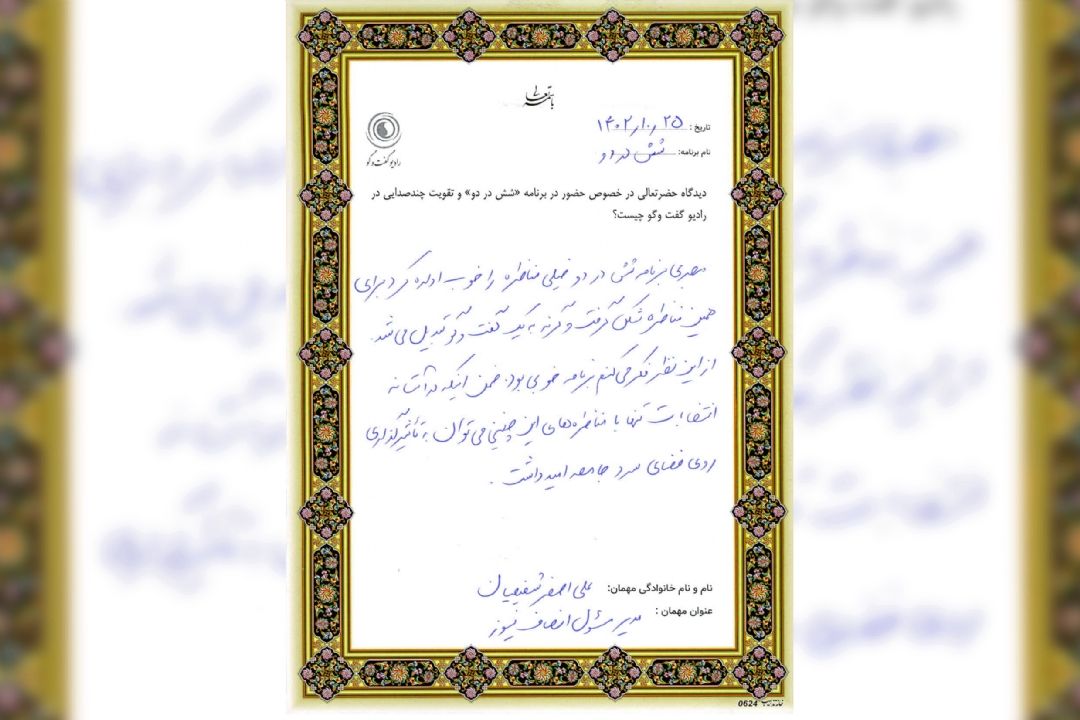 باسمه تعالی
رادیو گفت و گو
تاریخ: ۱۴۰۲،۱۰،۲۵
نام برنامه: شش در دو
دیدگاه حضرتعالی در خصوص حضور در برنامه «شش در دو» و تقویت چندصدایی در
رادیو گفت وگو چیست؟
مجری برنامه شش در دو خیلی مناظره را خوب اداره کرد برای
همین مناظره شکل گرفت وگرنه به یک گفت و گو تبدیل می شد.
از این نظر فکر می کنم برنامه خوبی بود. ضمن اینکه در آستانه
انتخابات تنها با مناظره های این چنینی می توان به تأثیرگذاری
روی فضای سرد جامعه امید داشت.
نام و نام خانوادگی مهمان: علی اصغر شفیعیان
عنوان مهمان: مدیر مسئول انصاف نیوز
0624